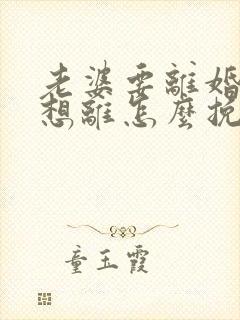 老婆要離婚
想離怎麼挽
童玉霞